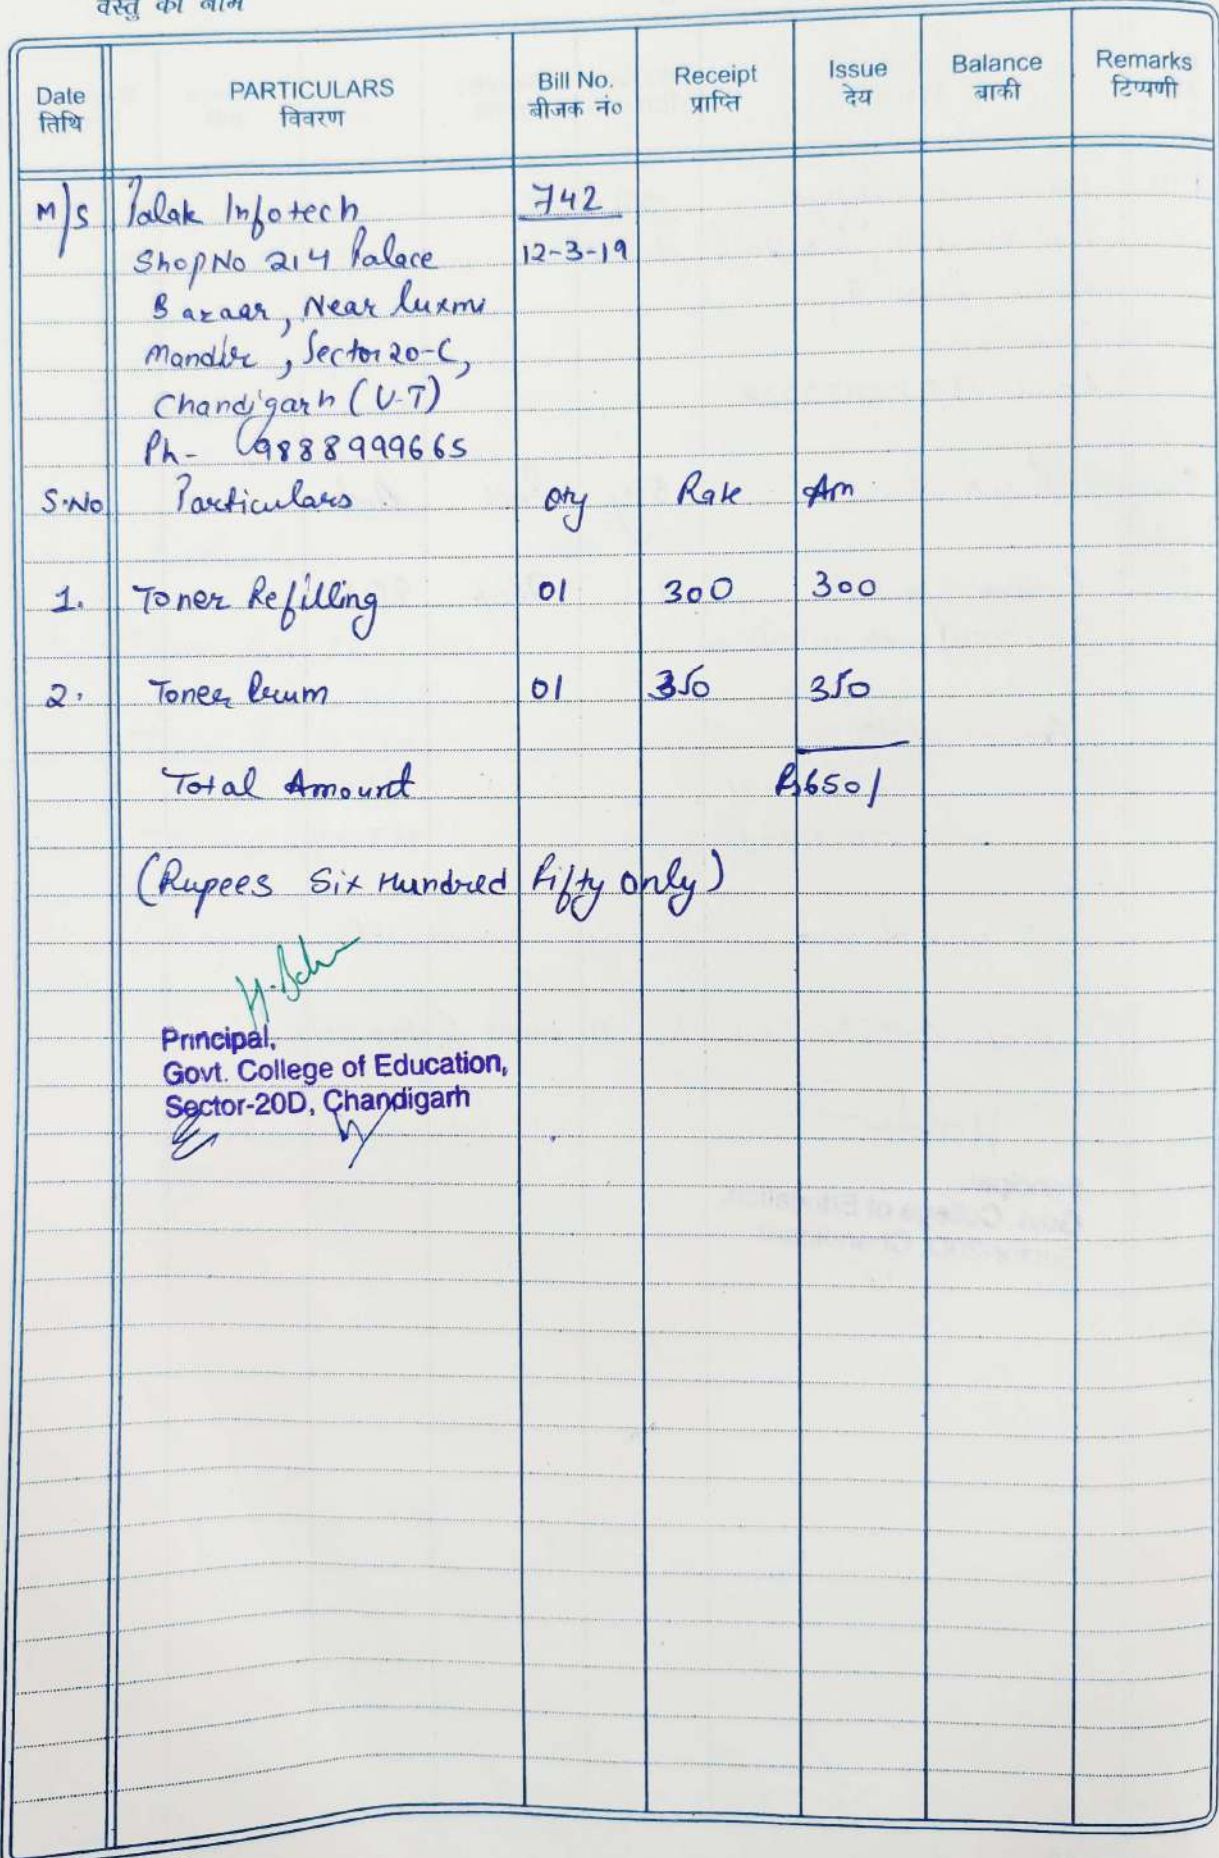 वस्तु का नाम
Date PARTICULARS Bill No. Receipt Issue Balance Remarks
तिथि विवरण बीजक नं० प्राप्ति देय बाकी टिप्पणी
M/S Palak Infotech 742
Shop No 214 Palace 12-3-19
Bazaar, Near luxmi
Mandir, Sector 20-C,
Chandigarh (U.T)
Ph- 9888999665
S.No Particulars Qty Rate Am
1. Toner Refilling 01 300 300
2. Toner Drum 01 350 350
Total Amount Rs650/
(Rupees Six Hundred Fifty only)
Principal,
Govt. College of Education,
Sector-20D, Chandigarh